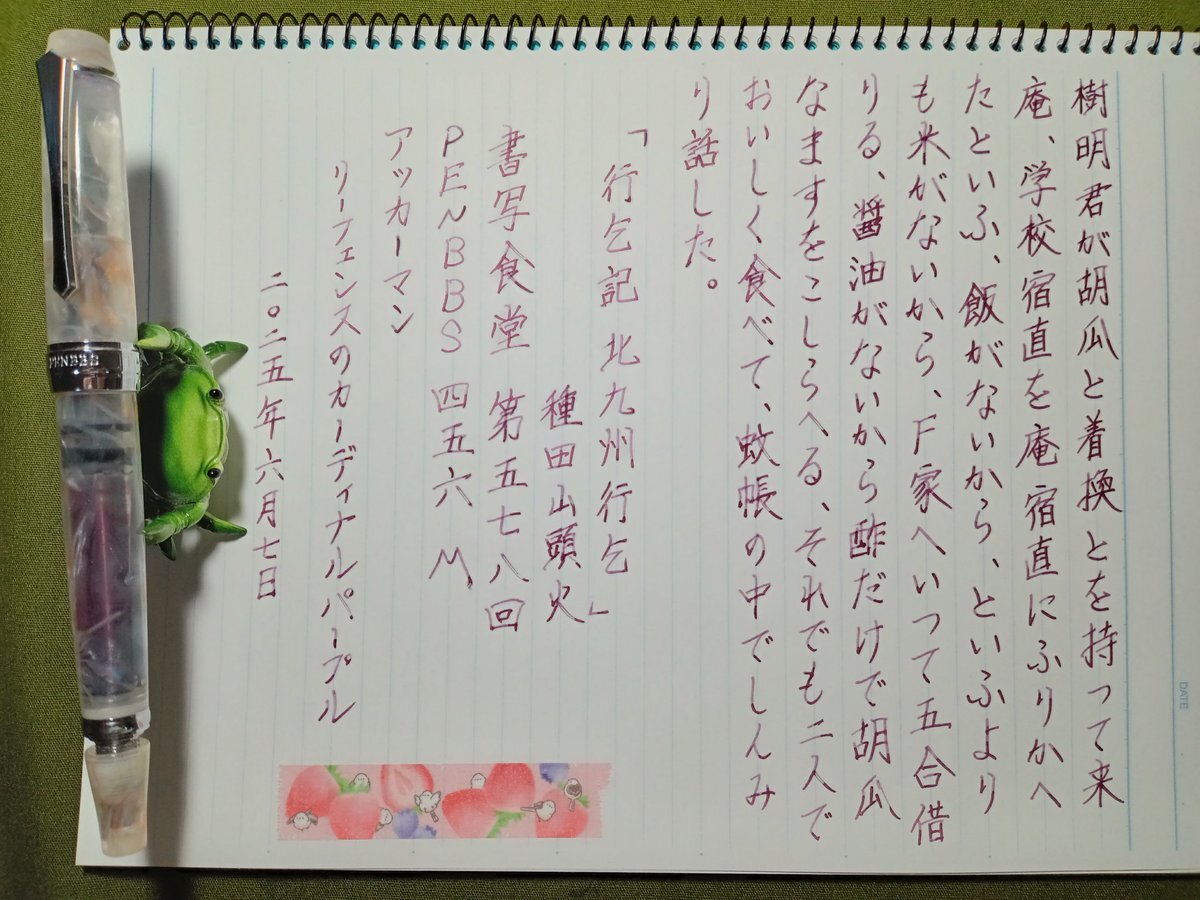 樹明君が胡瓜と着換とを持つて来
庵、学校宿直を庵宿直にふりかへ
たといふ、飯がないから、といふより
も米がないから、F家へいつて五合借
りる、醤油がないから酢だけで胡瓜
なますをこしらへる、それでも二人で
おいしく食べて、蚊帳の中でしんみ
り話した。
「行乞記 北九州行乞」
種田山頭火
書写食堂 第五七八回
PENBBS 四五六 M
アッカーマン
リーフェンスのカーディナルパープル
二〇二五年六月七日
PENBBS
DATE